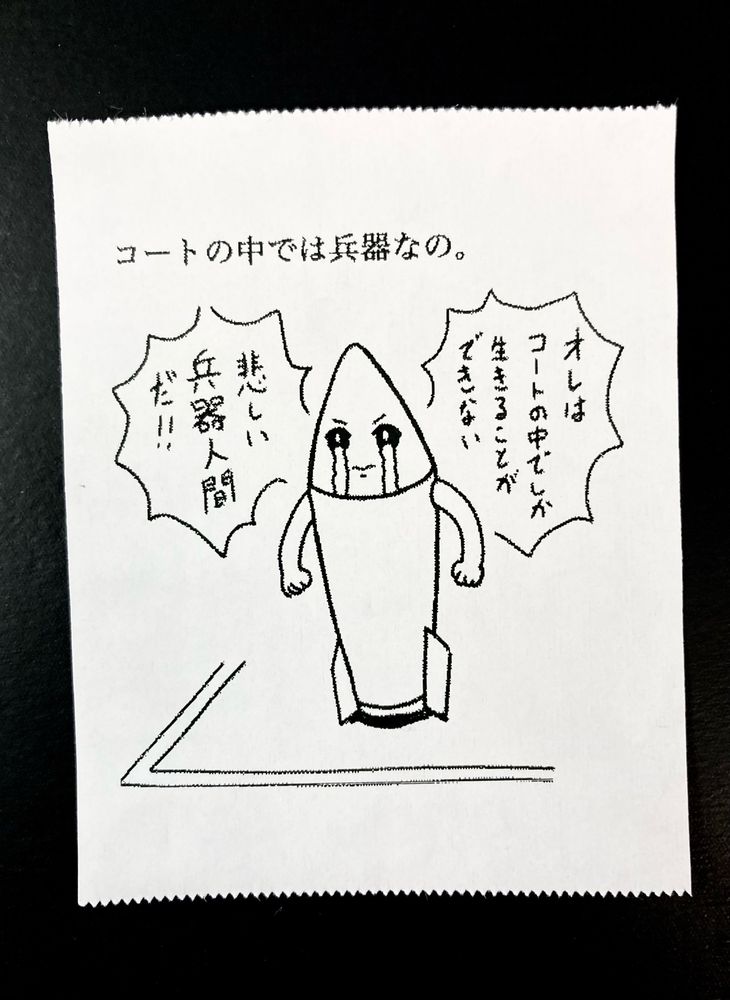 コートの中では兵器なの。
オレは
コートの中でしか
生きることが
できない
悲しい
兵器人間
だ!!